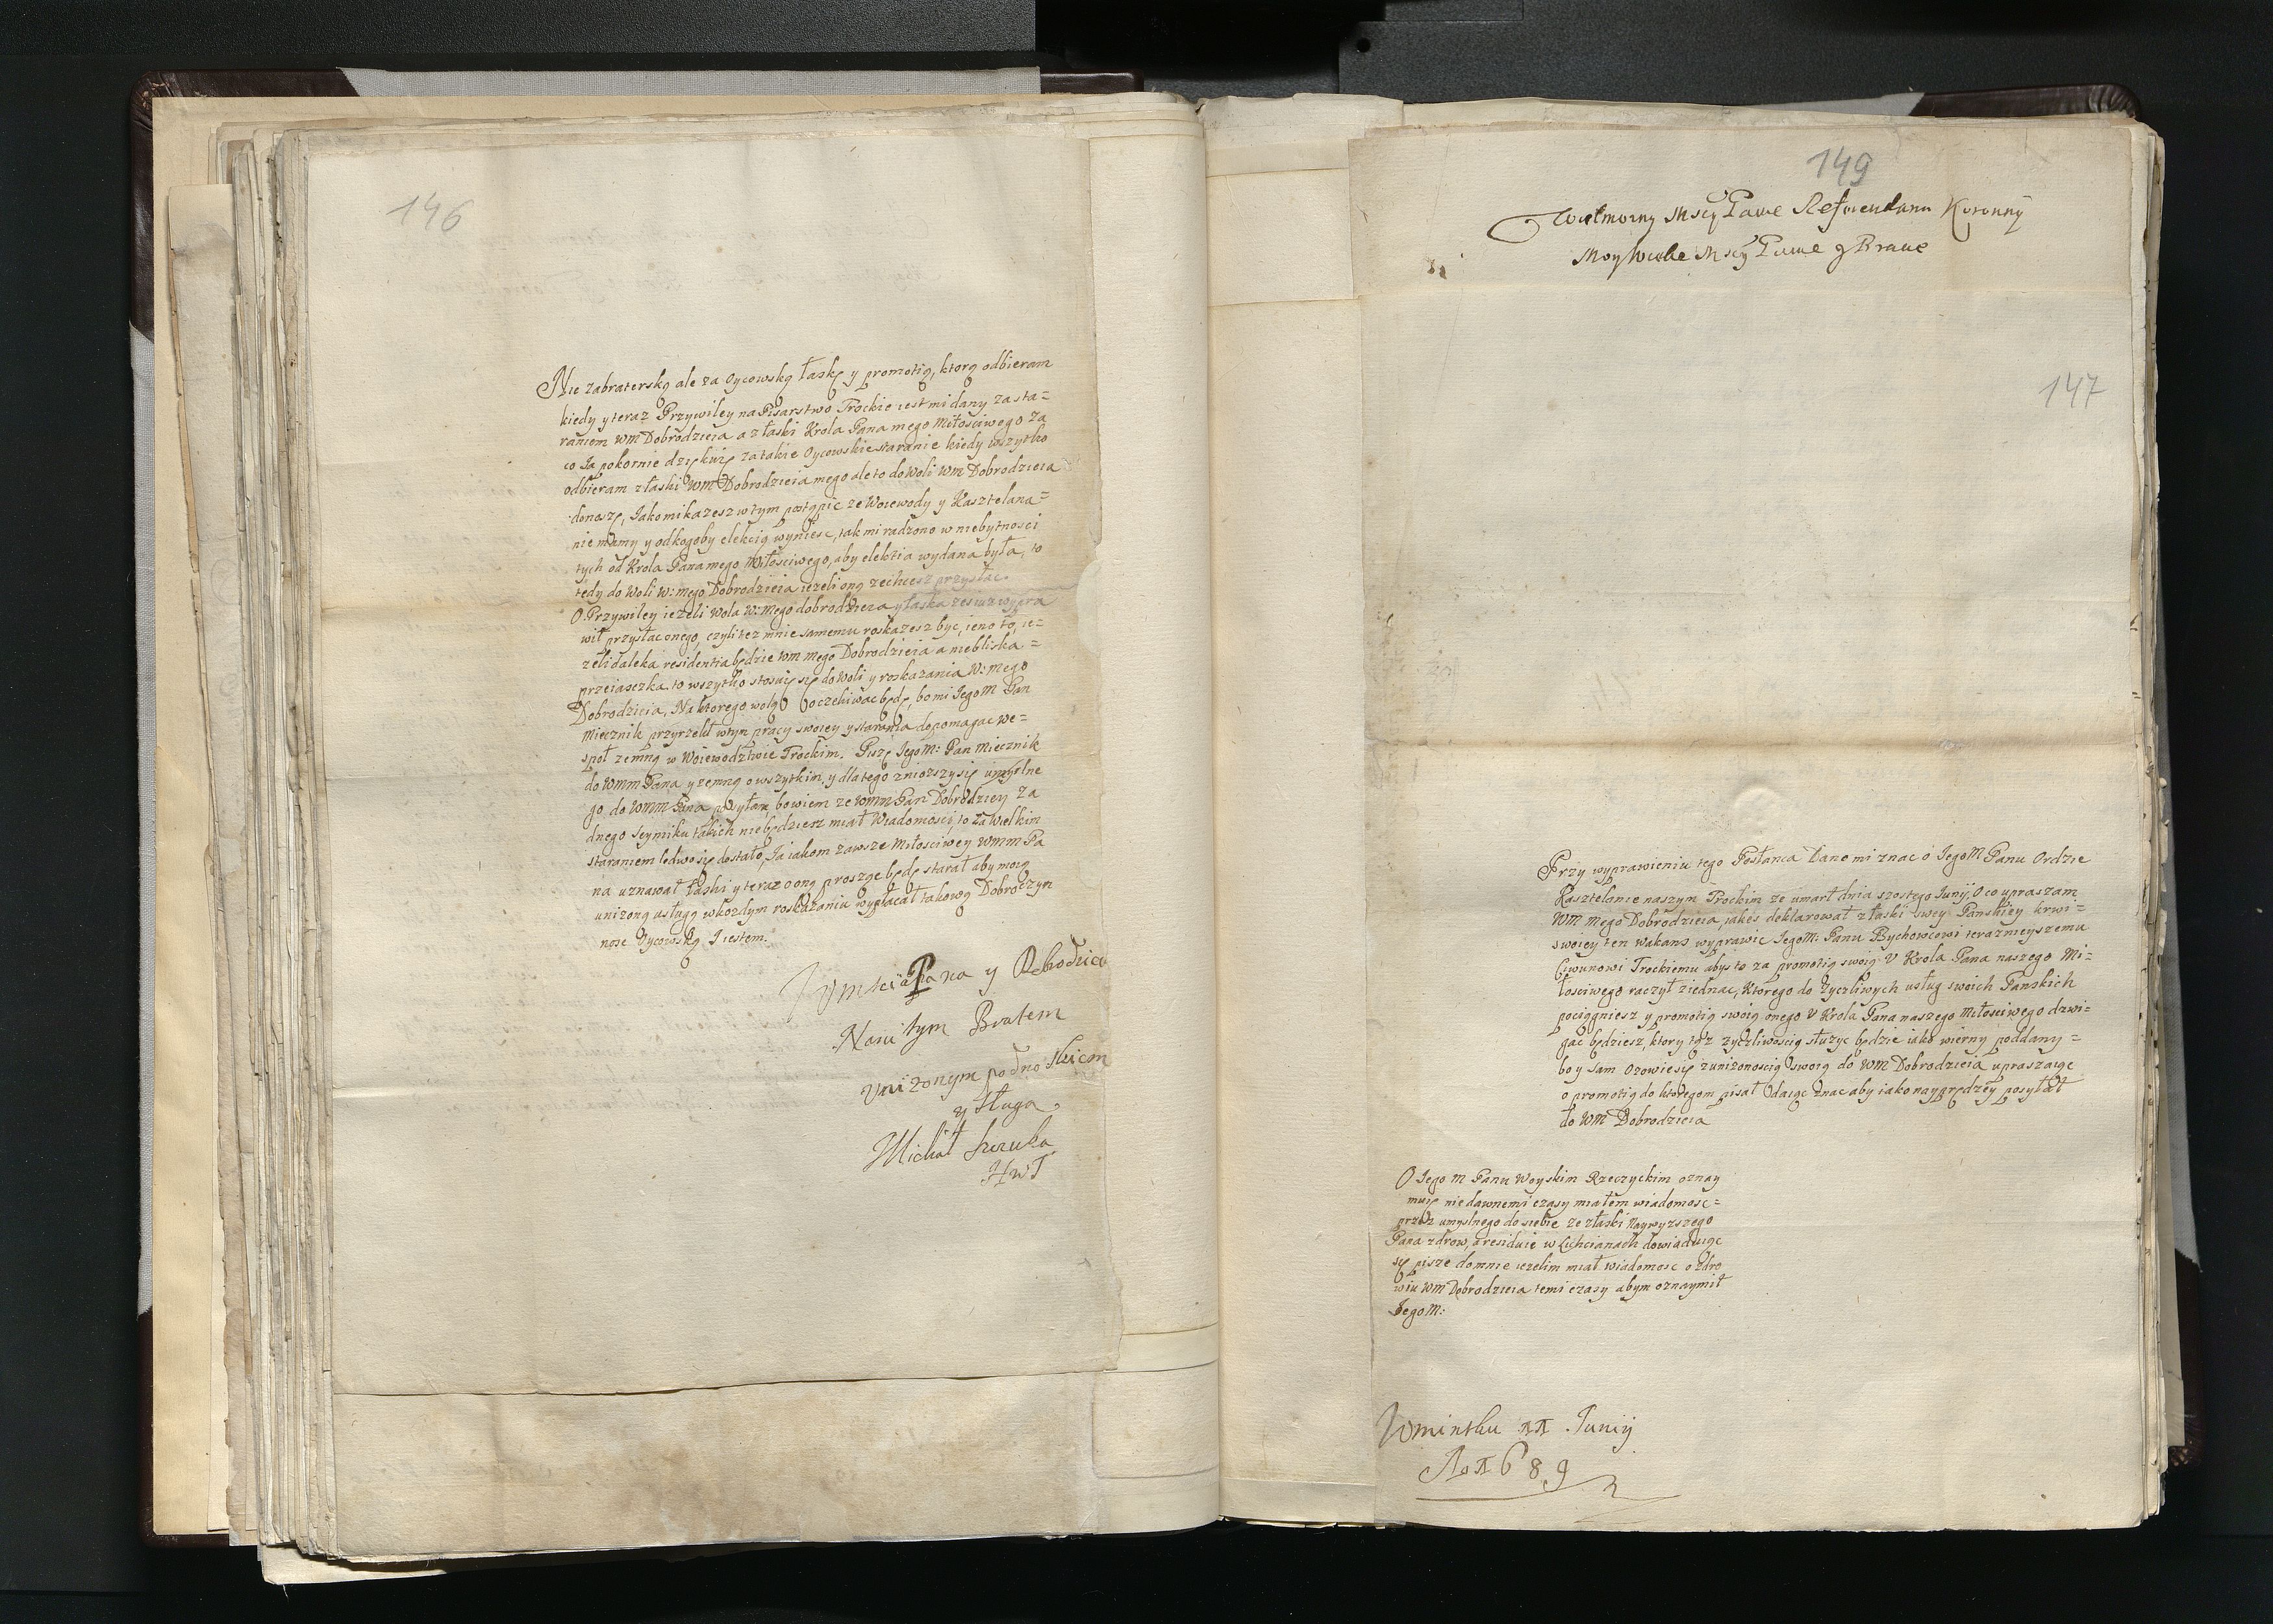 146
Nie zabraterską ale za Oycowską łaskę y promotią, ktorą odbieram
kiedy y teraz Przywiley na Pisarstwo Trockie iest mi dany za sta=
raniem WM Dobrodzieia a z łaski Krola Pana mego Miłosciwego za
co Ia pokornie dziękuię za takie Oycowskie staranie kiedy wszytko
odbieram z łaski WM Dobrodzieia mego ale to do woli WM Dobrodzieia
donoszę, Iako mi kazesz w tym postąpic ze Woiewody y Kasztelana=
nie mamy y od kogoby elekcią wyniesc, tak mi radzono w niebytnosci
tych od Krola Pana mego Miłosciwego, aby elektia wydana była, to
tedy do Woli W: mego Dobrodzieia iezeli oną zechcesz przysłac.
O Przywiley iezeli wola W: mego dobrodzieia y łaska zes iuz wypra
wił przysłac onego, czyli tez mnie samemu roskazesz byc, ieno to, ie=
zeli daleka residentia będzie WM mego Dobrodzieia a niebliska=
przeiasczka to wszytko stosuię się do Woli y roskazania W: mego
Dobrodzieia, Na ktorego wolą oczekiwac będę, bo mi Iego M Pan
Miecznik przyrzekł w tym pracy swoiey y starania dopomagac we=
społ zemną w Woiewodztwie Trockim. Pisze Iego M: Pan Miecznik
do WMM Pana y zemną o wszytkim, y dla tego zniozszy się umyslne
go do WMM Pana posyłam, bowiem ze WMM Pan Dobrodziey za
dnego Seymiku takich nie będziesz miał Wiadomosci, to za Wielkim
staraniem ledwo się dostało, Ia iakom zawsze Miłosciwey WMM Pa
na uznawał łaski y teraz o oną proszę będę starał aby moią
unizoną usługą w kozdym roskazaniu wypłacał takową Dobroczyn
nosc Oycowską I iestem.
Wmsci Pana y Dobodzieia
Nanitym Bratem
Unizonym podnoskiem
y sługa
Michał
HWT
149
Wielmozny Mscy Panie Referendarzu Koronny
Moy Wielce Mscy Panie y Bracie
147
Przy wyprawieniu tego Posłanca Dano mi znac o Iego M Panu Ordzie
Kasztelanie naszym Trockim ze umarł dnia szostego Iunij, O co upraszam
WM mego Dobrodzieia, iakes deklarował z łaski swey Panskiey krwi=
swoiey ten wakans wyprawic Iego M: Panu Bychowcowi terazneyszemu
Ciwunowi Trockiemu abys to za promotią swoią U Krola Pana naszego Mi=
łosciwego raczył ziednac, Ktorego do zyczliwych usług swoich Panskich
pociągniesz y promotią swoią onego U Krola Pana naszego Miłosciwego dzwi=
gac będziesz, ktory tąz zyczliwoscią słuzyc będzie iako wierny poddany=
bo y sam ozowie się z unizonoscią swoią do WM Dobrodzieia upraszaiąc
o promotią do ktoregom pisał daiąc znac aby iako nayprędzey posyłał
do WM Dobrodzieia
O Iego M Panu Woyskim Rzeczyckim oznay
muię niedawnemi czasy miałem wiadomosc=
przez umyslnego do siebie ze z łaski naywyzszego
Pana zdrow, a residuie w Cichcianach dowiaduiąc
się pisze do mnie iezelim miał wiadomosc o zdro
wiu WM Dobrodzieia temi czasy abym oznaymił
Iego M:
W Minsku 11 Junij
Ao 1689